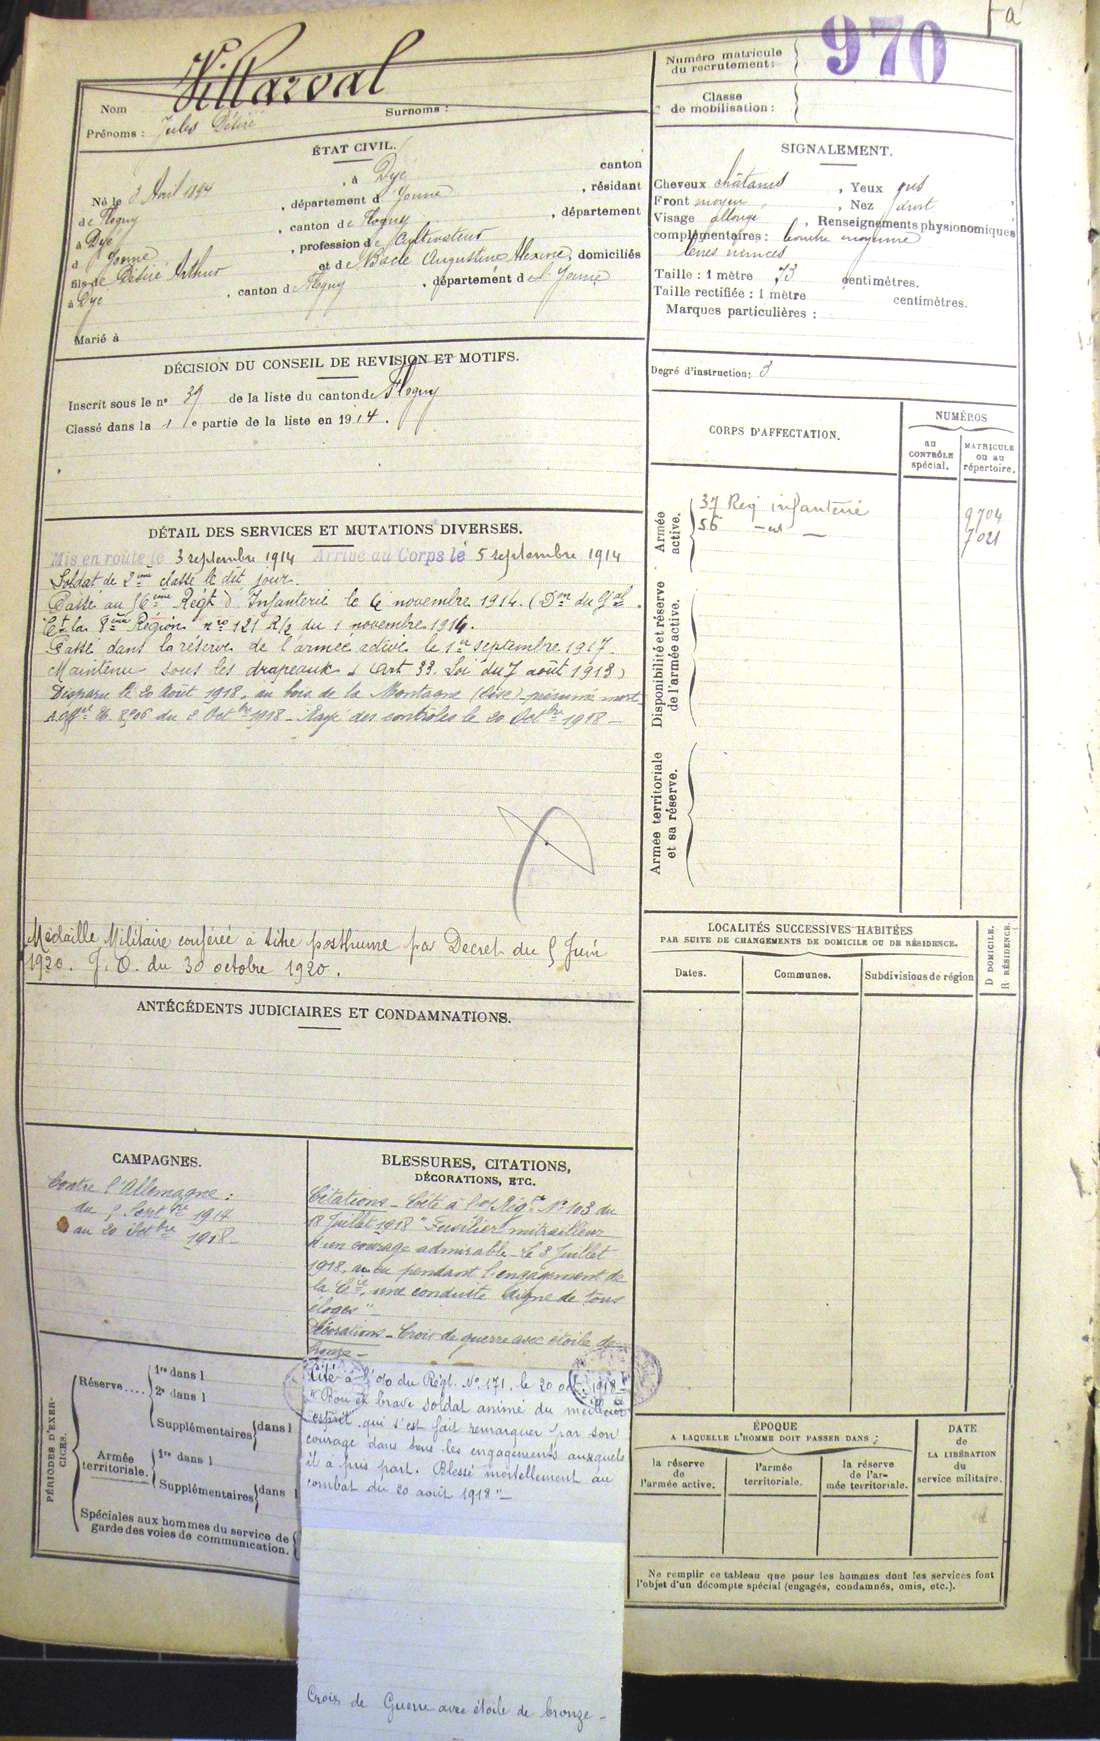 Fa
Nom Villarval
Prénoms : Jules Désiré Surnoms :
Numéro matricule du recrutement : 970
Classe de mobilisation :
ÉTAT CIVIL.
Né le 3 Avril 1894, à Dyé canton
de Flogny, département d l'Yonne, résidant
à Dyé, canton de Flogny, département
d Yonne, profession de Cultivateur
fils de Désiré Arthur et de Bacle Augustine Alexine, domiciliés
à Dyé, canton d Flogny, département de l'Yonne
Marié à
SIGNALEMENT.
Cheveux châtains, Yeux gris
Front moyen, Nez droit
Visage allongé, Renseignements physionomiques
complémentaires :
lèvres minces
Taille : 1 mètre 73 centimètres.
Taille rectifiée : 1 mètre centimètres.
Marques particulières :
Degré d'instruction : 3
DÉCISION DU CONSEIL DE REVISION ET MOTIFS.
Inscrit sous le n° 39 de la liste du canton de Flogny
Classé dans la 1 e partie de la liste en 1914.
DÉTAIL DES SERVICES ET MUTATIONS DIVERSES.
Mis en route le 3 septembre 1914 Arrivé au Corps le 5 septembre 1914
Soldat de 2ème classe le dit jour.
Passé au 56ème Régt d'Infanterie le 6 novembre 1914. (Don du Gal
Ct la 8ème Région n° 121 R/2 du 1 novembre 1914.
Passé dans la réserve de l'armée active le 1er septembre 1917.
Maintenu sous les drapeaux (Art 33. Loi du 7 août 1913)
Disparu le 20 Août 1918, au bois de la Montagne (Oise) - présumé mort
du 2 Octbre 1918 - Rayé des contrôles le 20 Octbre 1918 -
Médaille Militaire conférée à titre posthume par Decret du 5 Juin
1920. J.O. du 30 octobre 1920.
CORPS D'AFFECTATION.
NUMÉROS
au CONTRÔLE spécial.
MATRICULE ou au répertoire.
Armée active.
37 Reg infanterie 9704
56 - et - 7021
Disponibilité et réserve de l'armée active.
Armée territoriale et sa réserve.
ANTÉCÉDENTS JUDICIAIRES ET CONDAMNATIONS.
LOCALITÉS SUCCESSIVES HABITÉES
PAR SUITE DE CHANGEMENTS DE DOMICILE OU DE RÉSIDENCE.
Dates. Communes. Subdivisions de région
D DOMICILE.
R RÉSIDENCE.
CAMPAGNES.
Contre l'Allemagne :
du 5 Septbre 1914
au 20 Octbre 1918
BLESSURES, CITATIONS,
DÉCORATIONS, ETC.
Citations - Cité à l'o/ Régt N° 103 du
18 Juillet 1918 "Fusilier mitrailleur
d'un courage admirable - le 8 Juillet
1918, a eu pendant l'engagement de
la Cie, une conduite digne de tous
éloges" -
Décorations - Croix de guerre avec étoile de
bronze -
Cité à l'o/o du Régt. N° 171. le 20 oct. 1918
"Bon et brave soldat animé du meilleur
esprit qui s'est fait remarquer par son
courage dans tous les engagements auxquels
il a pris part. Blessé mortellement au
combat du 20 août 1918" -
Croix de Guerre avec étoile de bronze -
PÉRIODES D'EXERCICES.
Réserve....
1re dans l
2e dans l
Supplémentaires dans l
Armée territoriale.
1re dans l
Supplémentaires dans l
Spéciales aux hommes du service de
garde des voies de communication.
ÉPOQUE
A LAQUELLE L'HOMME DOIT PASSER DANS :
la réserve de l'armée active.
l'armée territoriale.
la réserve de l'armée territoriale.
DATE de LA LIBÉRATION du service militaire.
Ne remplir ce tableau que pour les hommes dont les services font
l'objet d'un décompte spécial (engagés, condamnés, omis, etc.).